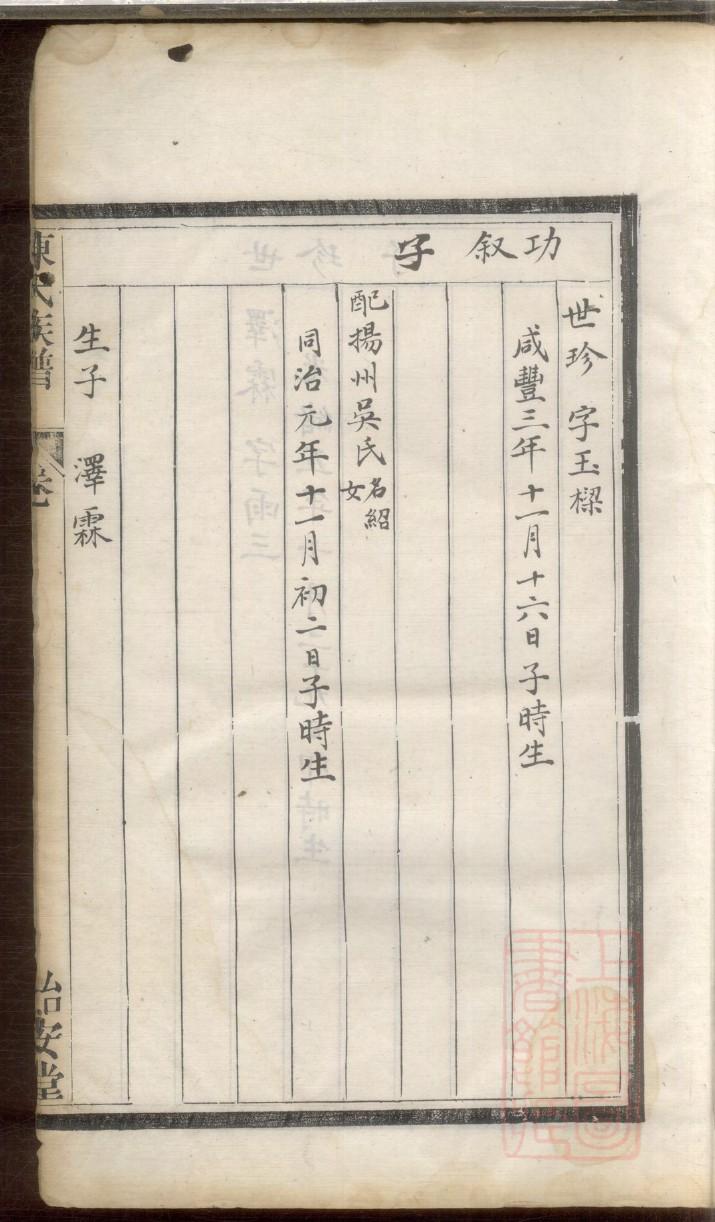 功叙子
世珍 字玉樑
咸豐三年十一月十六日子時生
配揚州吳氏名紹女
同治元年十一月初二日子時生
生子 澤霖
陳氏族譜 卷 治安堂
上海圖書館藏